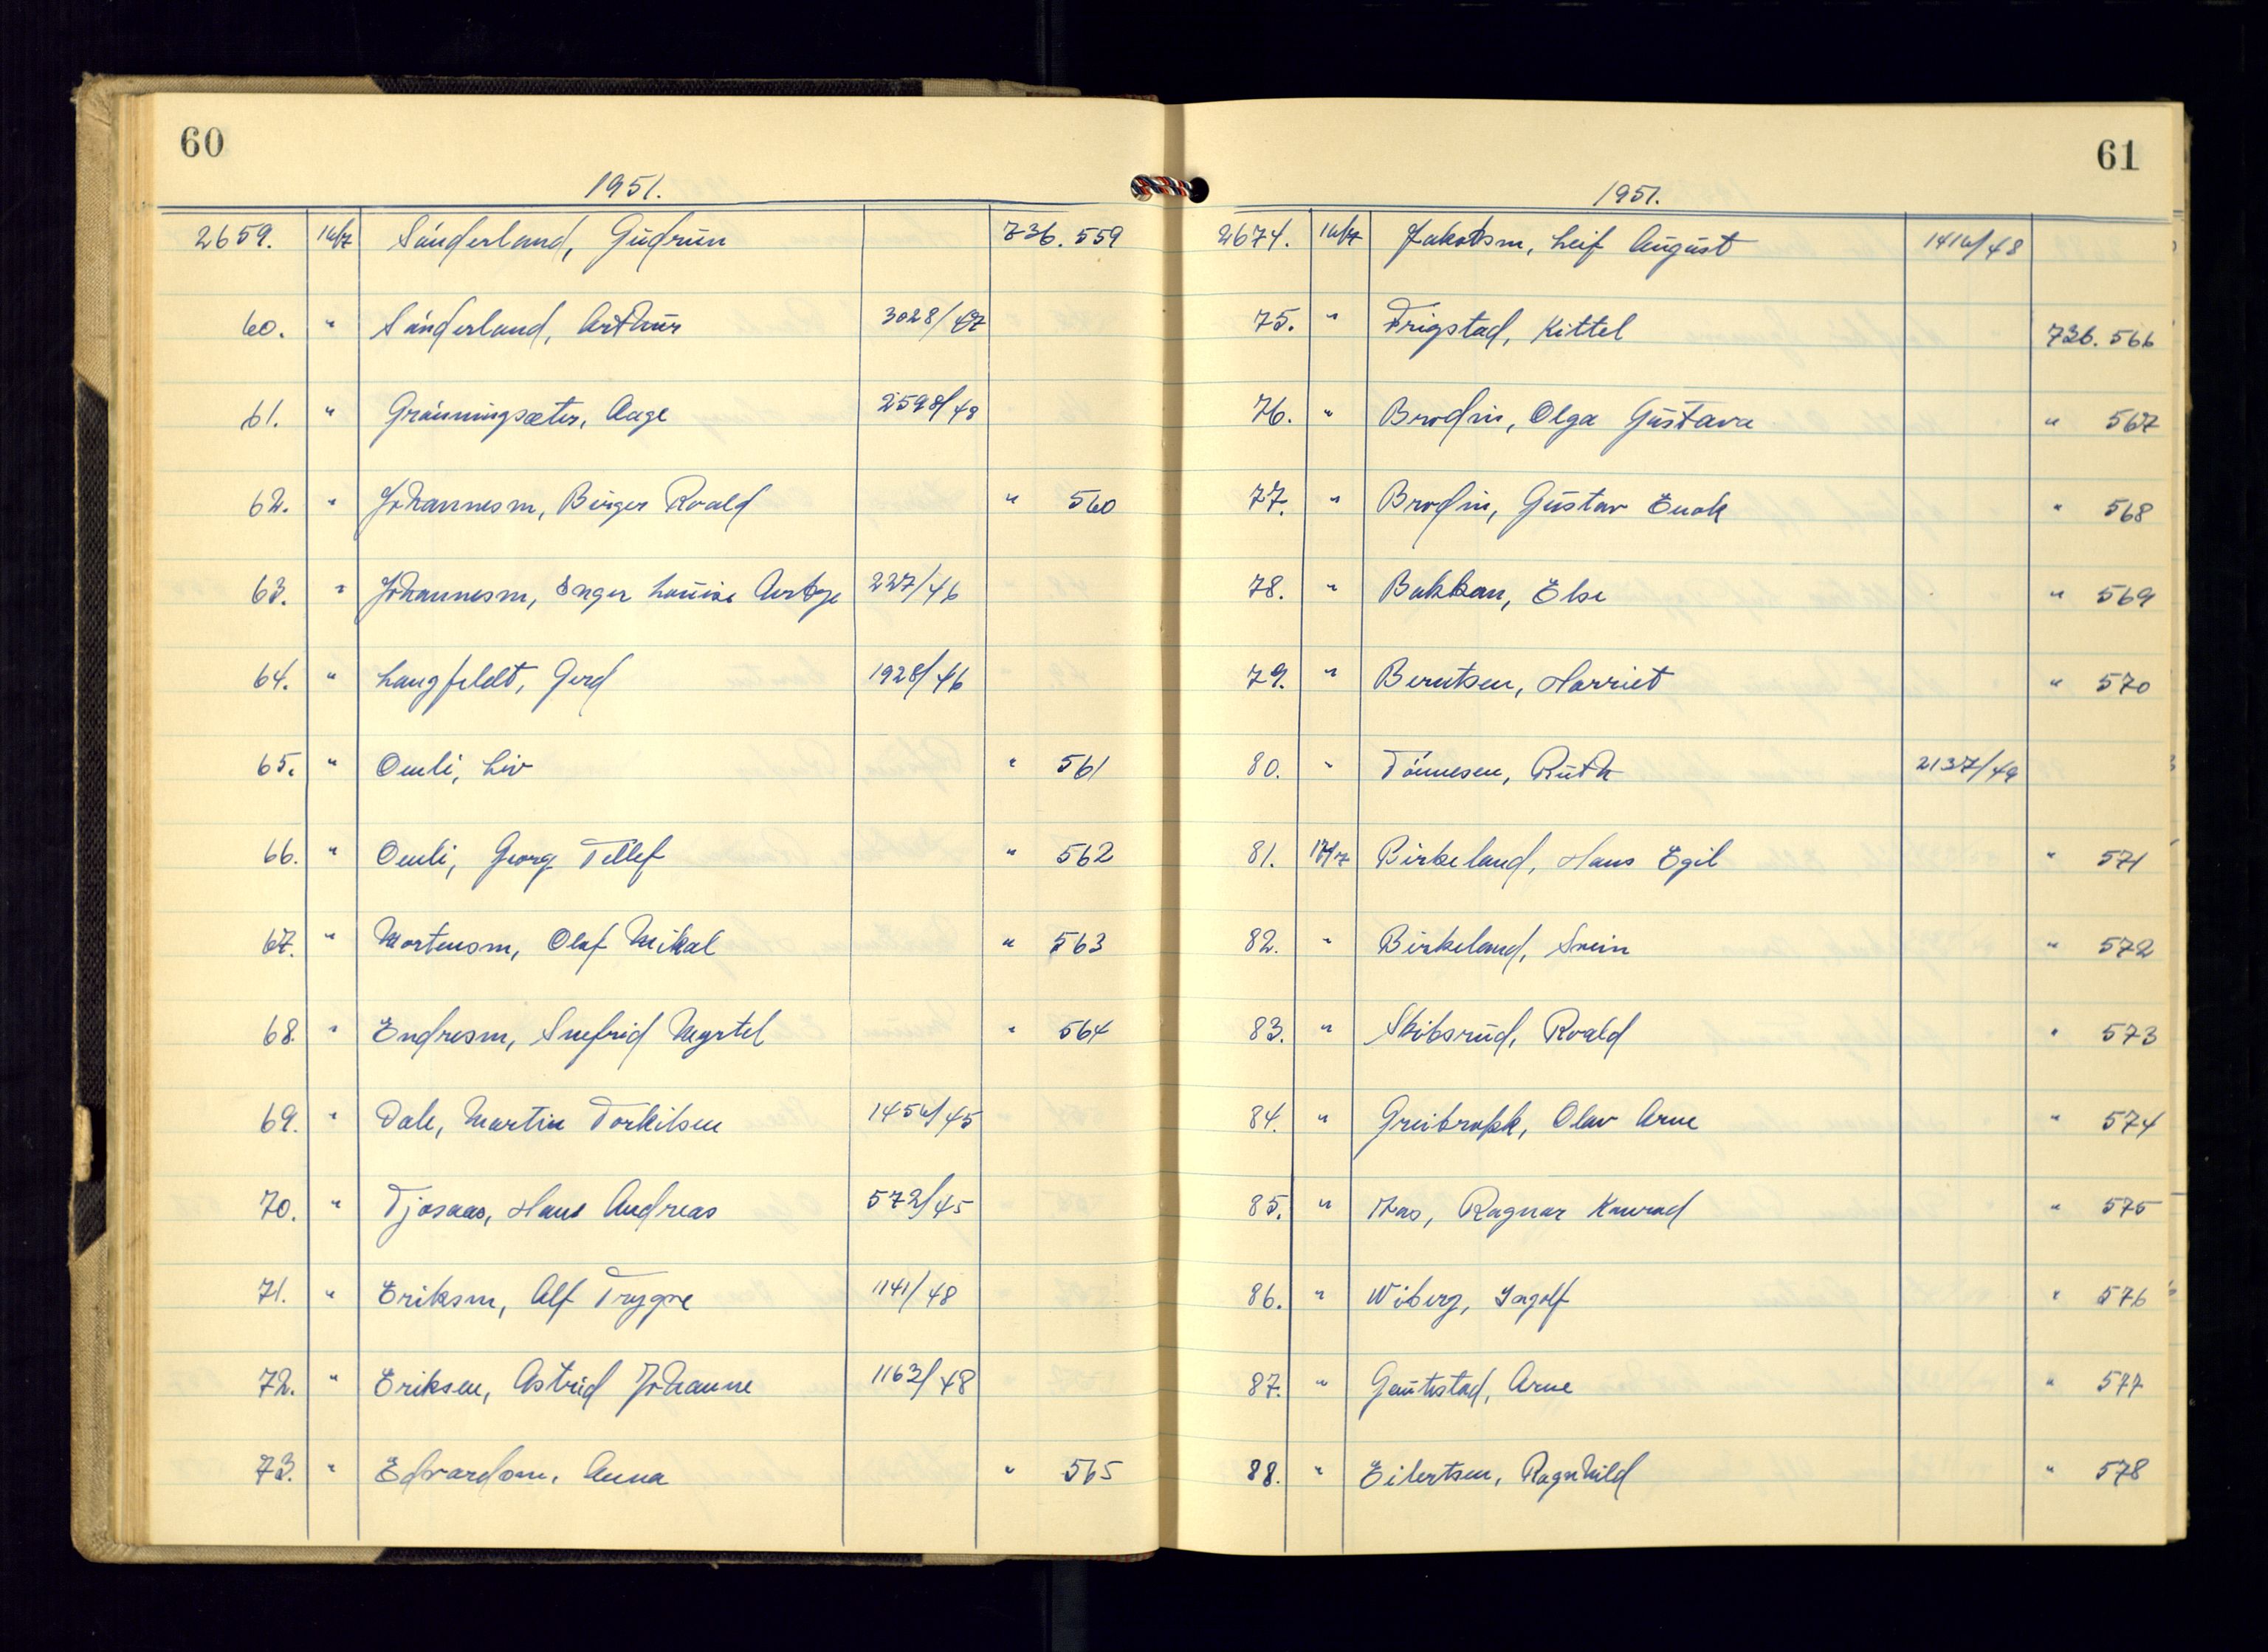 60
1951.
2659. 16/7 Sånderland, Gudrun 736.559
60. " Sånderland, Arthur 3028/47
61. " Grånningsæter, Aage 2598/49
62. " Johannesen, Birger Roald " 560
63. " Johannesen, Inger Louise 227/46
64. " Langfeldt, Gerd 1928/46
65. " Omli, Liv " 561
66. " Omli, Georg Tellef " 562
67. " Mortensen, Olaf Mikal " 563
68. " Endresen, Snefrid Myrtel " 564
69. " Dale, Martin Torkilsen 1456/45
70. " Tjosaas, Hans Andreas 572/45
71. " Eriksen, Alf Trygve 1141/48
72. " Eriksen, Astrid Johanne 1163/48
73. " Edvardsen, Anna " 565
61
1951.
2674. 16/7 Jakobsen, Leif August 1416/48
75. " Frigstad, Kittel 736.566
76. " Brodin, Olga Gustava " 567
77. " Brodin, Gustav Enok " 568
78. " Bakkan, Else " 569
79. " Berntsen, Harriet " 570
80. " Tönnesen, Ruth 2137/49
81. 17/7 Birkeland, Hans Egil " 571
82. " Birkeland, Svein " 572
83. " Skibsrud, Roald " 573
84. " Greibrokk, Olav Arne " 574
85. " Aas, Ragnar Konrad " 575
86. " Wiberg, Ingolf " 576
87. " Gautestad, Arne " 577
88. " Eilertsen, Ragnhild " 578